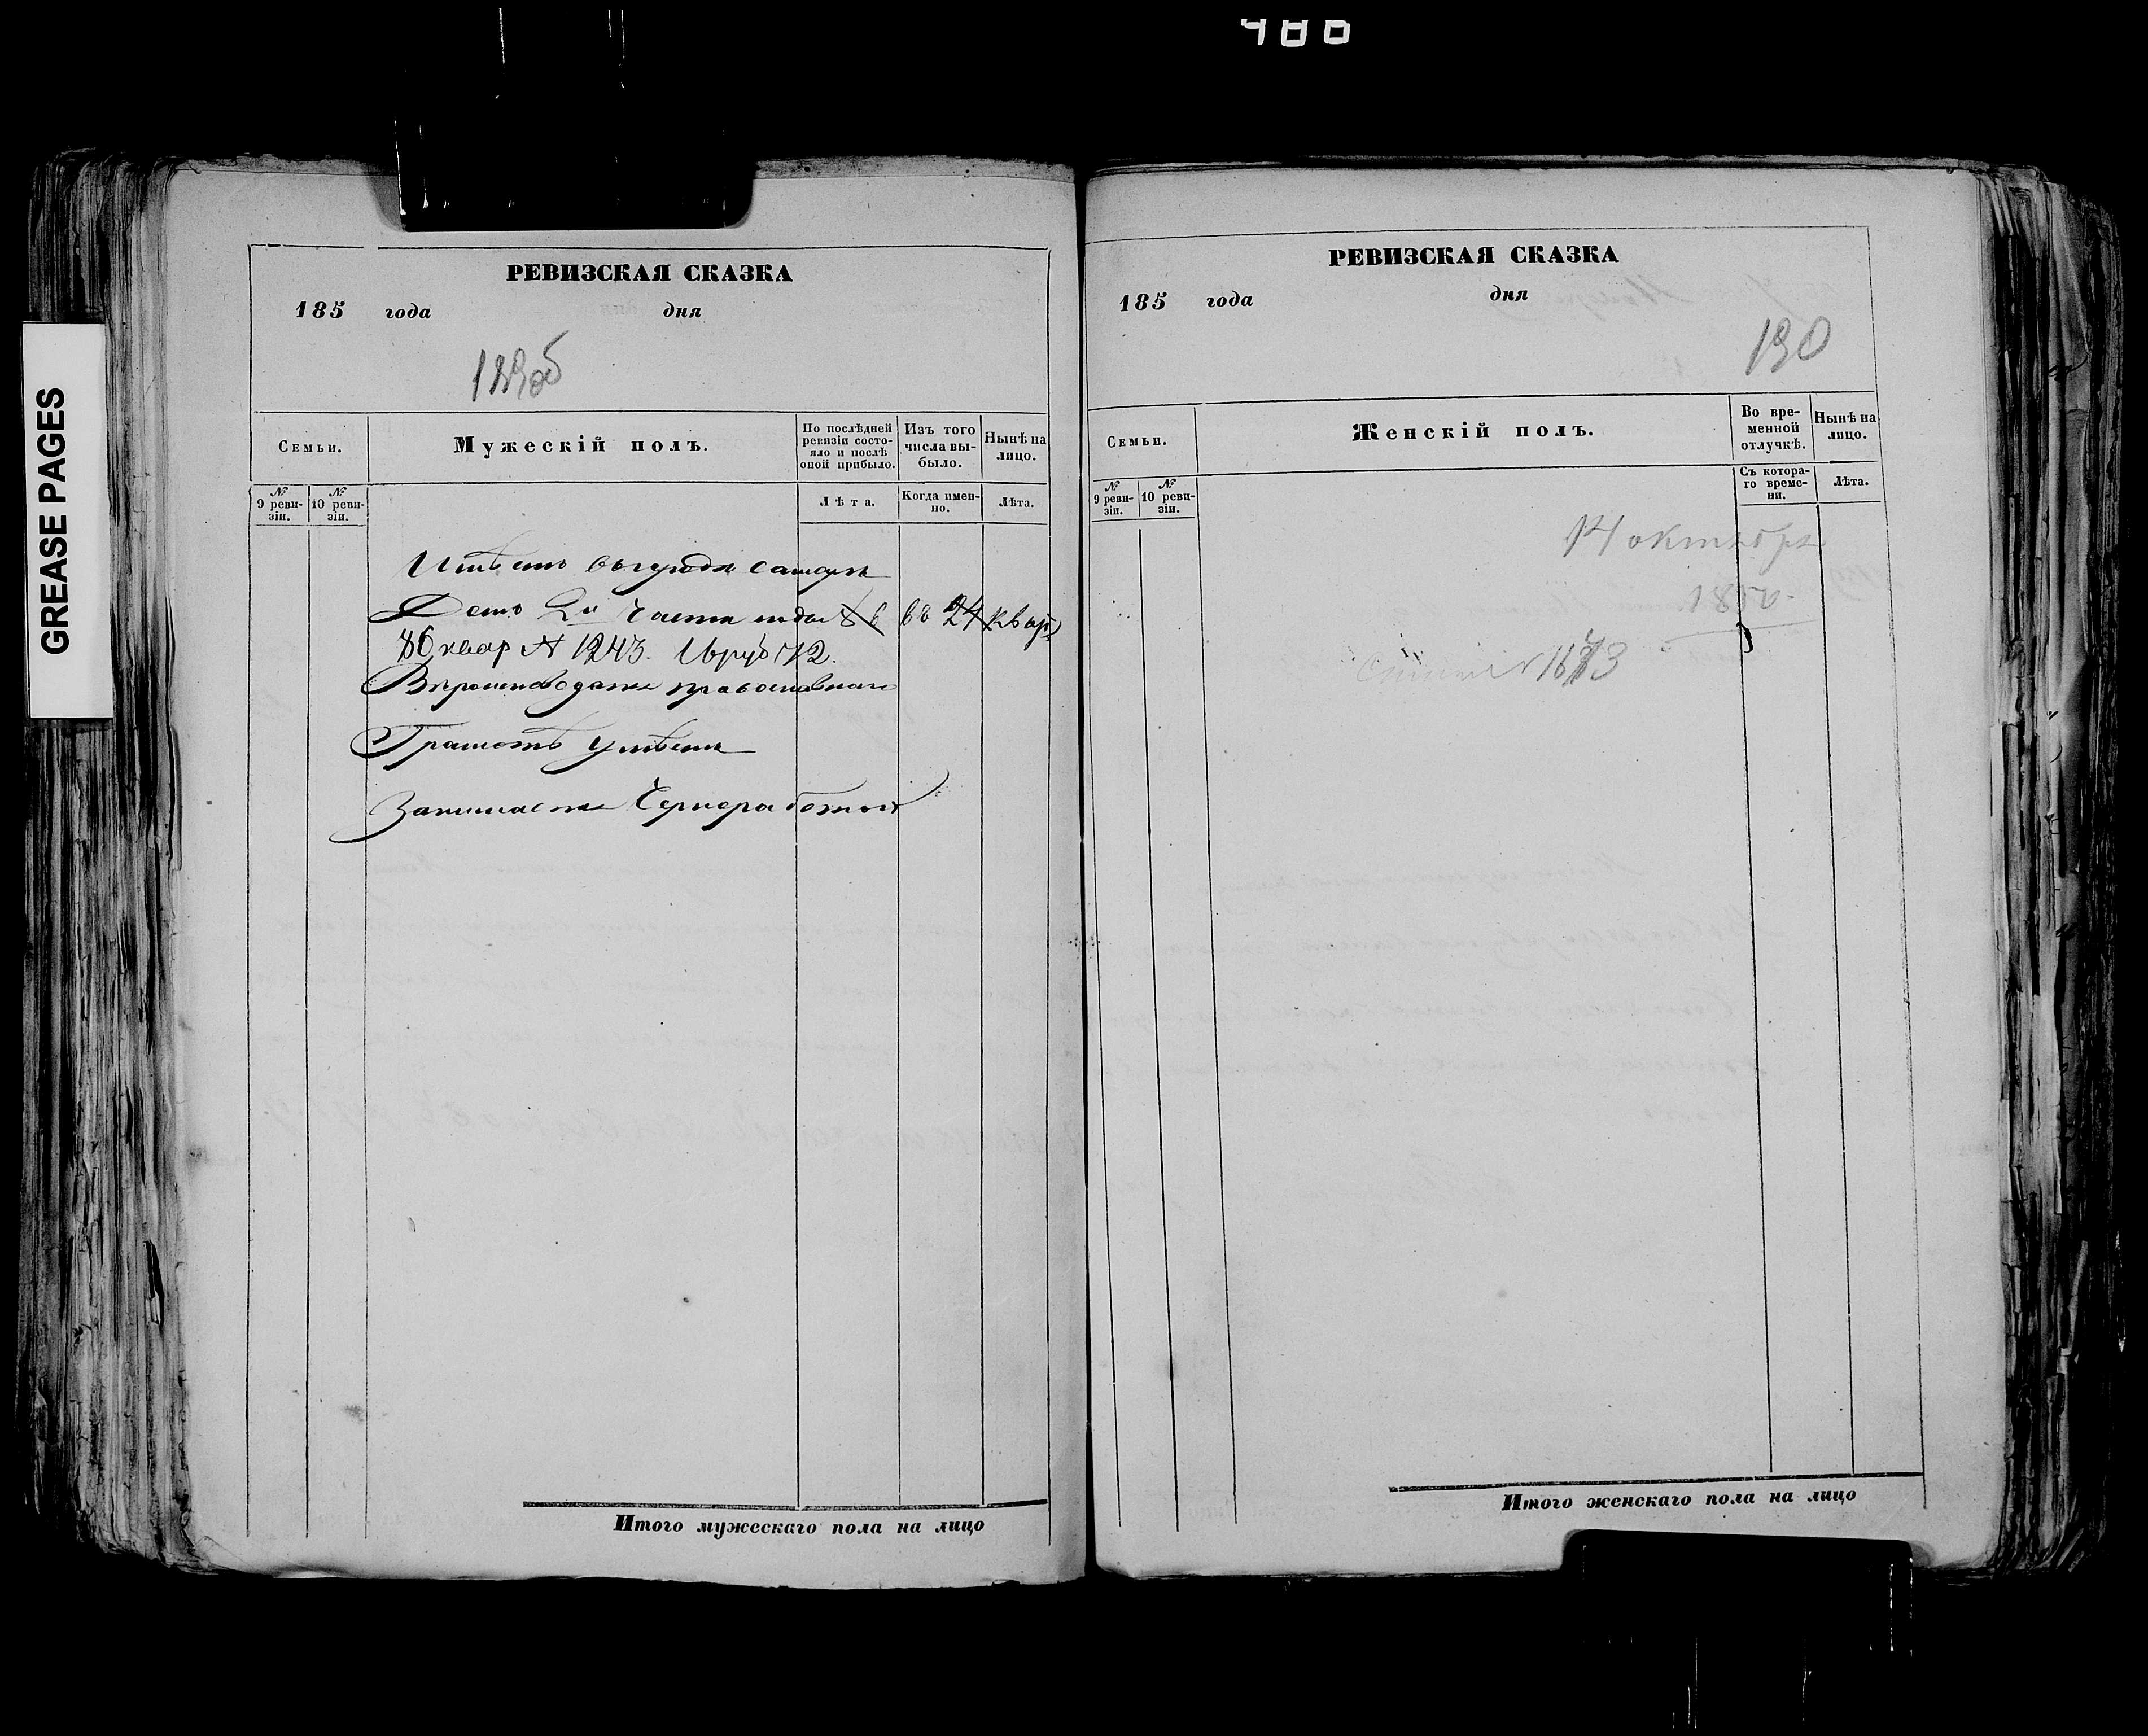 486
GREASE PAGES
РЕВИЗСКАЯ СКАЗКА
185 года дня
189об
Семьи.
Мужескій полъ.
По послѣдней ревизіи состояло и послѣ оной прибыло.
Изъ того числа выбыло.
Нынѣ на лицо.
№ 9 ревизіи.
№ 10 ревизіи.
Лѣта.
Когда именно.
Лѣта.
Имѣетъ въ городѣ Самарѣ
Домъ 2й части во 24 квар
86 квар № 1243.
Вѣроисповѣданія православнаго
Грамотѣ умѣетъ
Занимается Чернработой
Итого мужескаго пола на лицо
РЕВИЗСКАЯ СКАЗКА
185 года дня
190
Семьи.
Женскій полъ.
Во временной отлучкѣ.
Нынѣ на лицо.
№ 9 ревизіи.
№ 10 ревизіи.
Съ котораго времени.
Лѣта.
14 октября
Итого женскаго пола на лицо